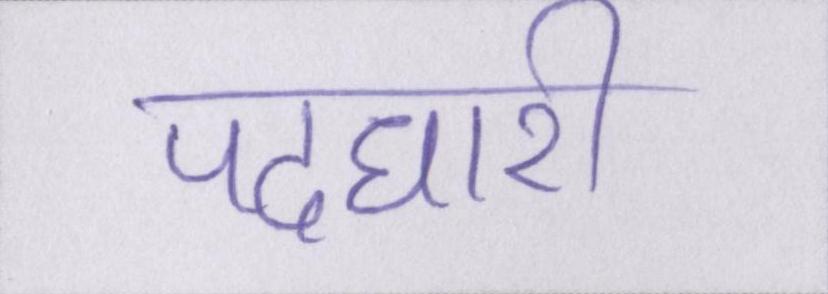 पदधारी